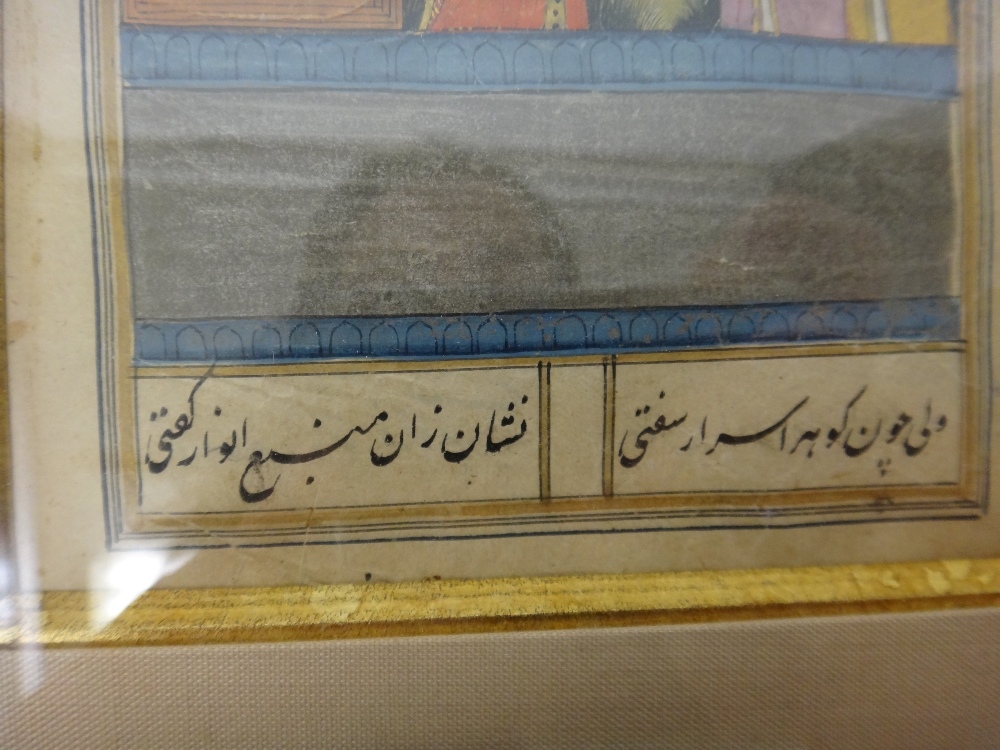 ولی چون کوهر اسرار سفتی
نشان زان منبع انوار کفتی